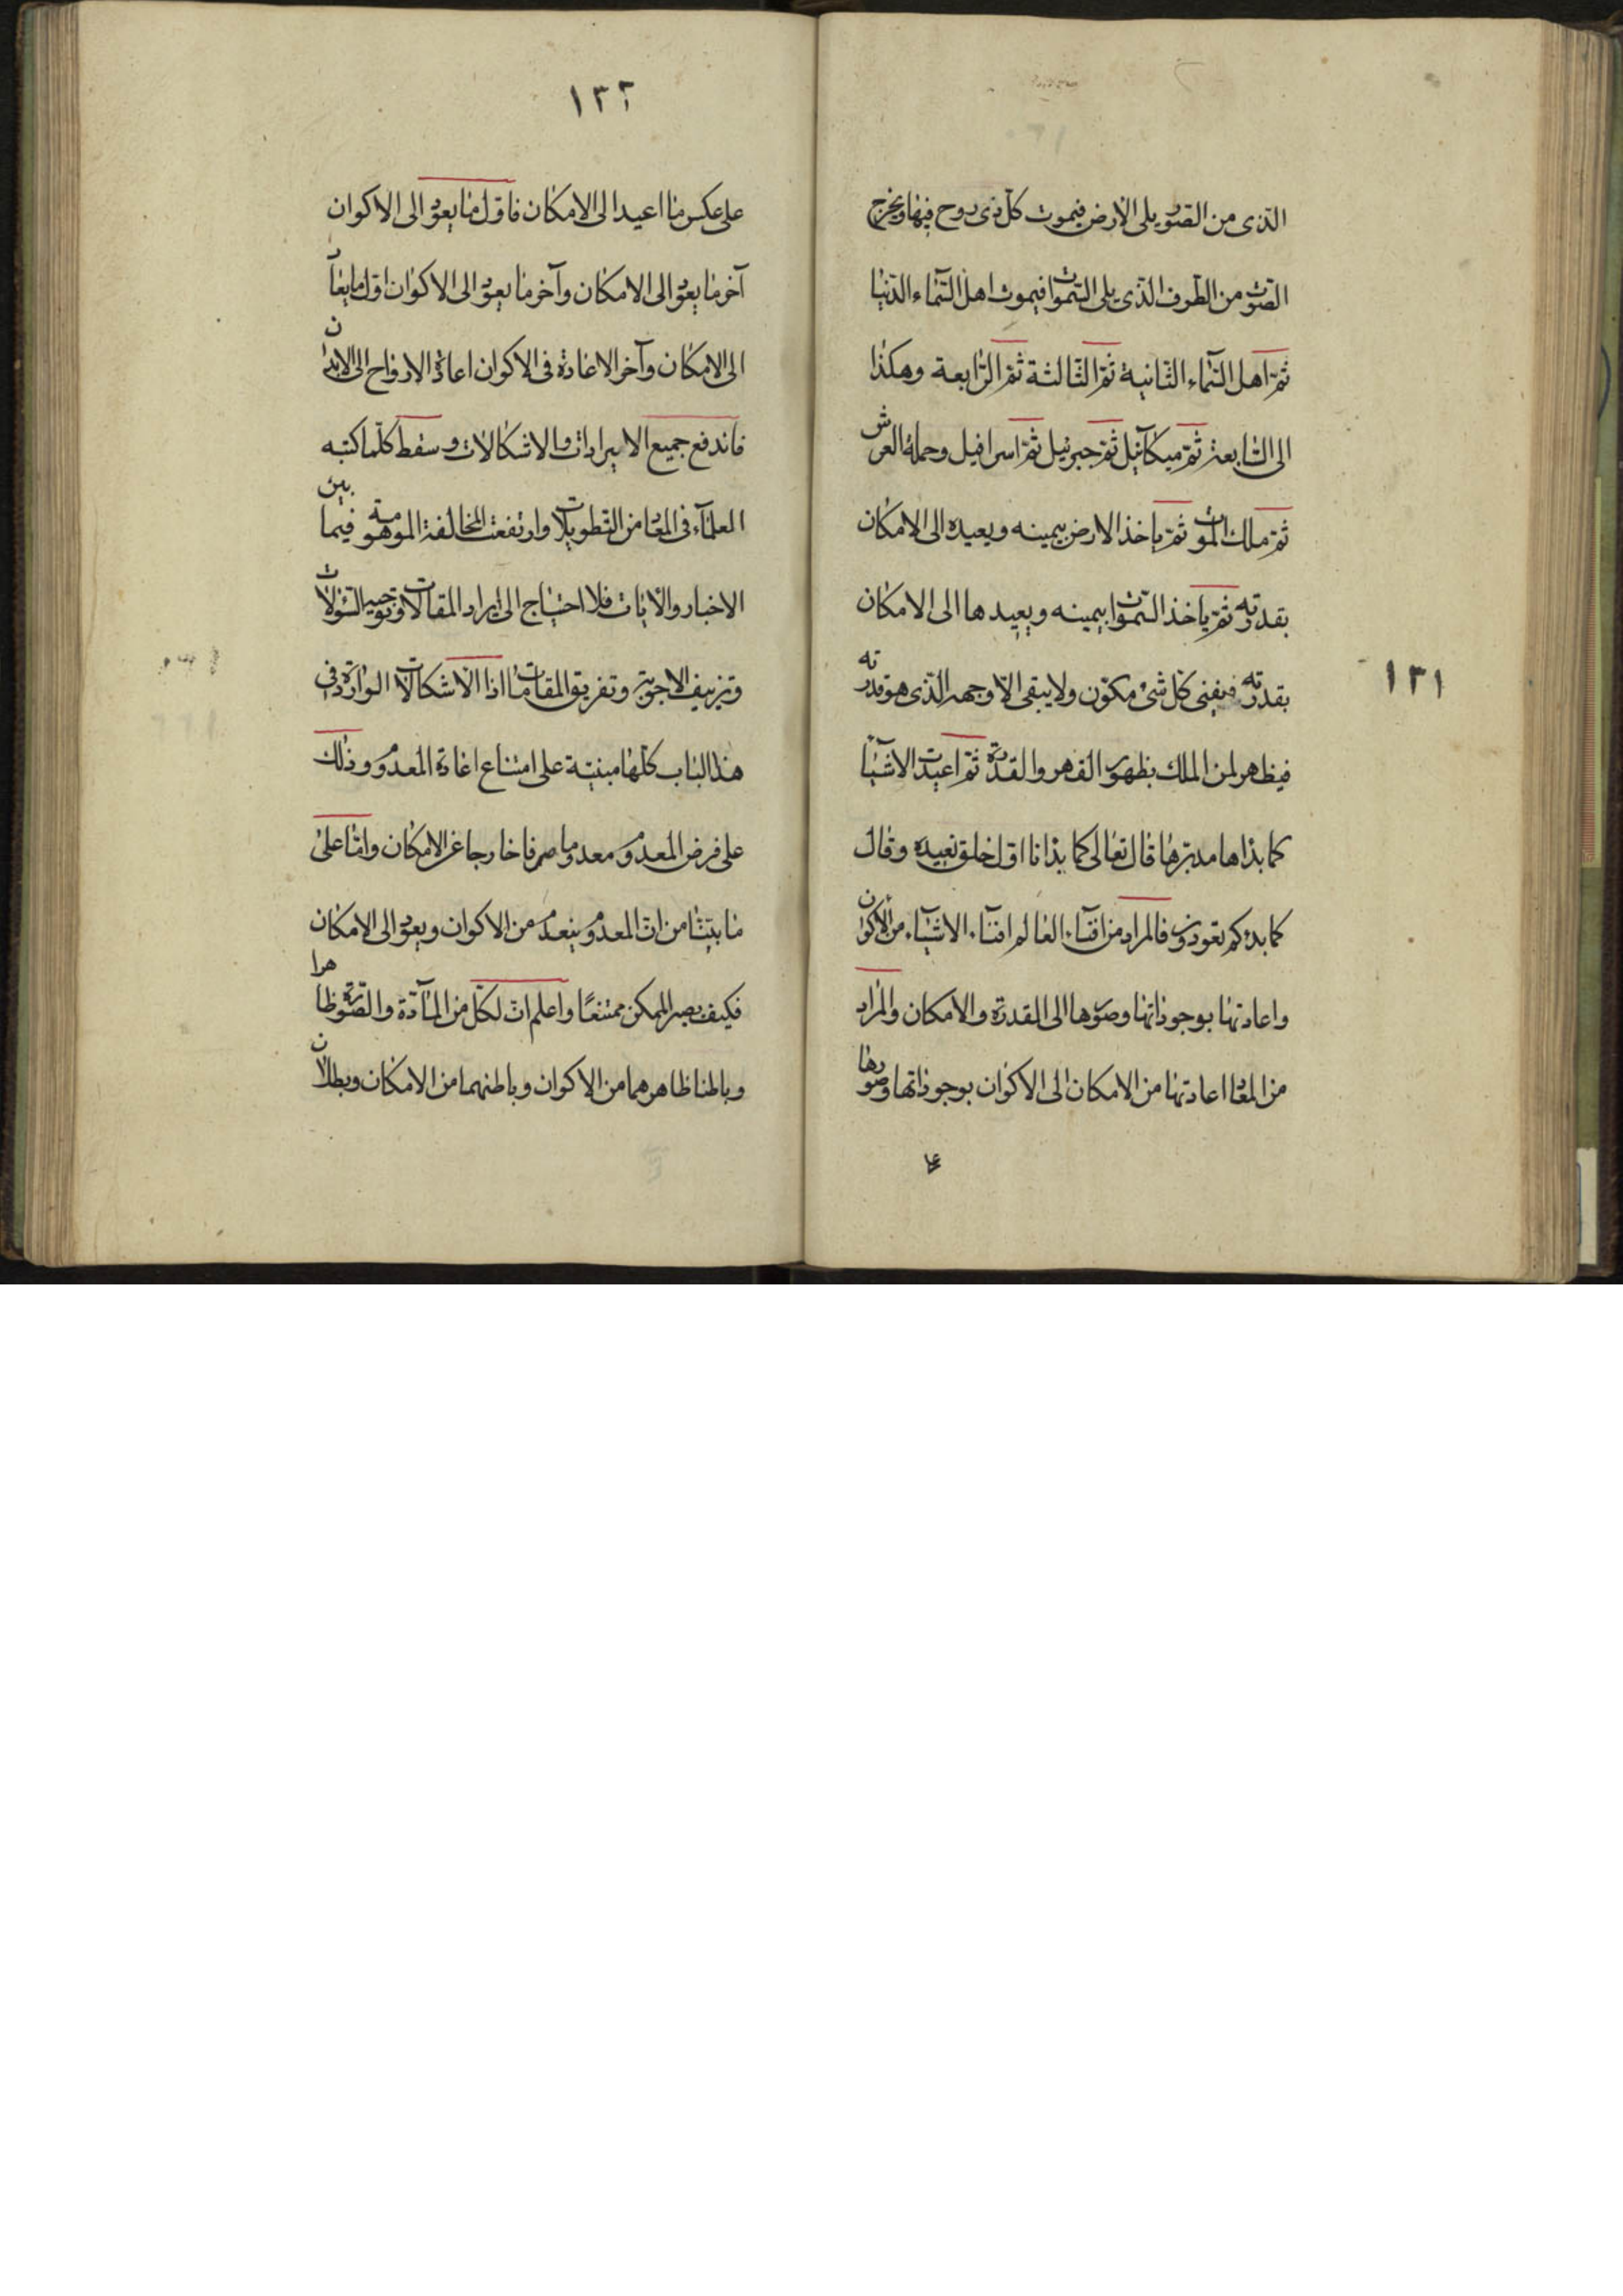 ١٣١
الّذى من الصّور يلى الارض فيموت كلّ ذى روح فيها ويخرج
الصّوت من الطّرف الّذى يلى السّموات فيموت اهل السّماء الدّنيا
ثمّ اهل السّماء الثّانية ثمّ الثّالثة ثمّ الرّابعة وهكذا
الى السّابعة ثمّ ميكآئيل ثمّ جبرئيل ثمّ اسرافيل وحملة العرش
ثمّ ملك الموت ثمّ ياخذ الارض بيمينه ويعيده الى الامكان
بقدرته ثمّ ياخذ السّموات بيمينه ويعيدها الى الامكان
بقدرته فيفنى كلّ شئ مكوّن ولا يبقى الّا وجهه الّذى هو قدرته
فيظهر لمن الملك بظهور القهر والقدرة ثمّ اعيدت الاشيآء
كما بداها مدبّرها قال تعالى كما بدانا اوّل خلق نعيده وقال
كما بدءكم تعودون فالمراد من افنآء العالم افنآء الاشيآء من الاكوان
واعادتها بوجوداتها وصورها الى القدرة والامكان والمراد
من المعاد اعادتها من الامكان الى الاكوان بوجوداتها وصورها
١٣٢
على عكس ما اعيد الى الامكان فاوّل ما يعود الى الاكوان
آخر ما يعود الى الامكان وآخر ما يعود الى الاكوان اوّل ما يعاد
الى الامكان وآخر الاعادة فى الاكوان اعادة الارواح الى الابدان
فاندفع جميع الايرادات والاشكالات وسقط كلّما كتبه
العلمآء فى المعاد من التّطويلات وارتفعت المخالفة الموهومة فيما بين
الاخبار والآيات فلا احتياج الى ايراد المقالات وتوجيه السّؤلات
وتزييف الاجوبة وتفريق المقامات اذا الاشكالات الواردة فى
هذا الباب كلّها مبنيّة على امتناع اعادة المعدوم وذلك
على فرض المعدوم معدوما صرفا خارجا عن الامكان وامّا على
ما بيّنّا من انّ المعدوم ينعدم من الاكوان ويعود الى الامكان
فكيف يصير الممكن ممتنعًا واعلم انّ لكلّ من المآدّة والصّورة ظاهرا
وباطنا ظاهرهما من الاكوان وباطنهما من الامكان وبطلان